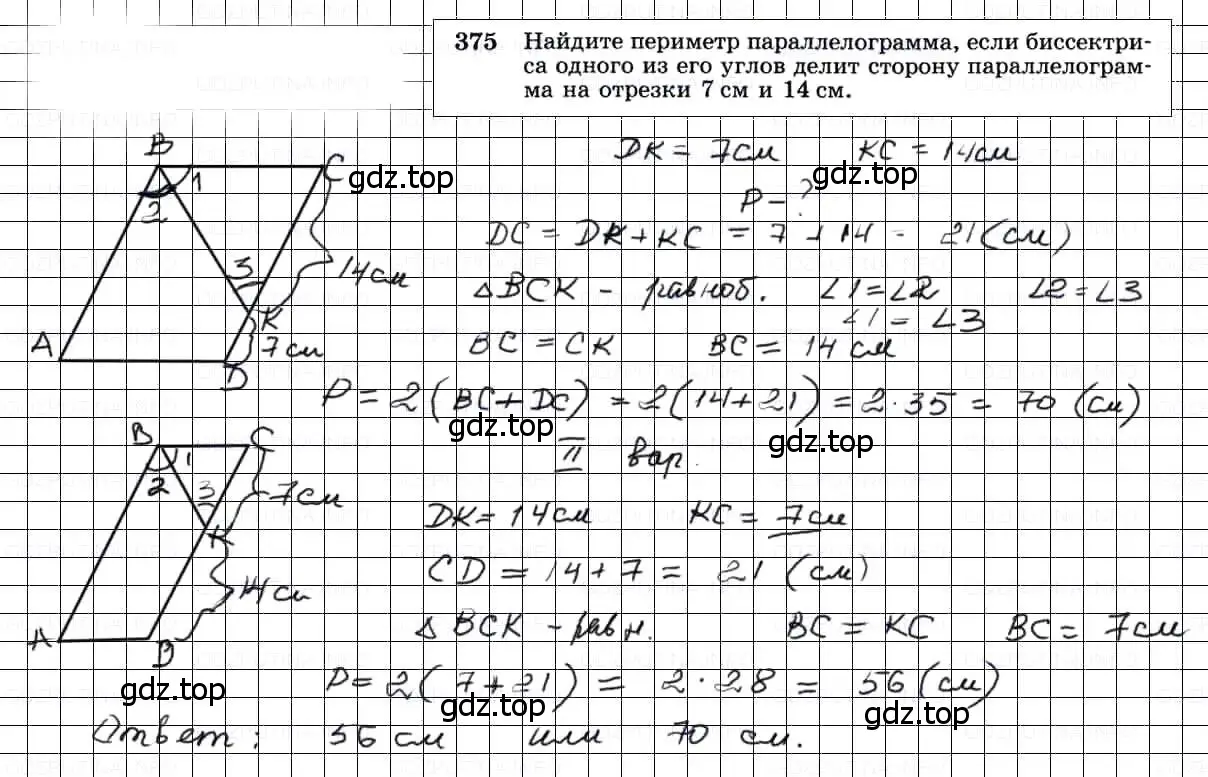 375 Найдите периметр параллелограмма, если биссектри-
са одного из его углов делит сторону параллелограм-
ма на отрезки 7 см и 14 см.
DK = 7см KC = 14см
P - ?
B C
1
2
3
14см
K
7см
A
D
gdz.top gdz.top
DC = DK + KC = 7 + 14 = 21(см)
△BCK - равноб. ∠1=∠2 ∠2=∠3
∠1 = ∠3
BC = CK BC = 14 см
P = 2(BC+DC) = 2(14+21) = 2·35 = 70 (см)
gdz.top gdz.top
II вар.
B C
1
2
3
7см
K
14см
A
D
DK = 14см KC = 7см
CD = 14+7 = 21 (см)
△BCK - равн. BC = KC BC = 7см
P = 2(7+21) = 2·28 = 56(см)
gdz.top gdz.top gdz.top
Ответ: 56 см или 70 см.